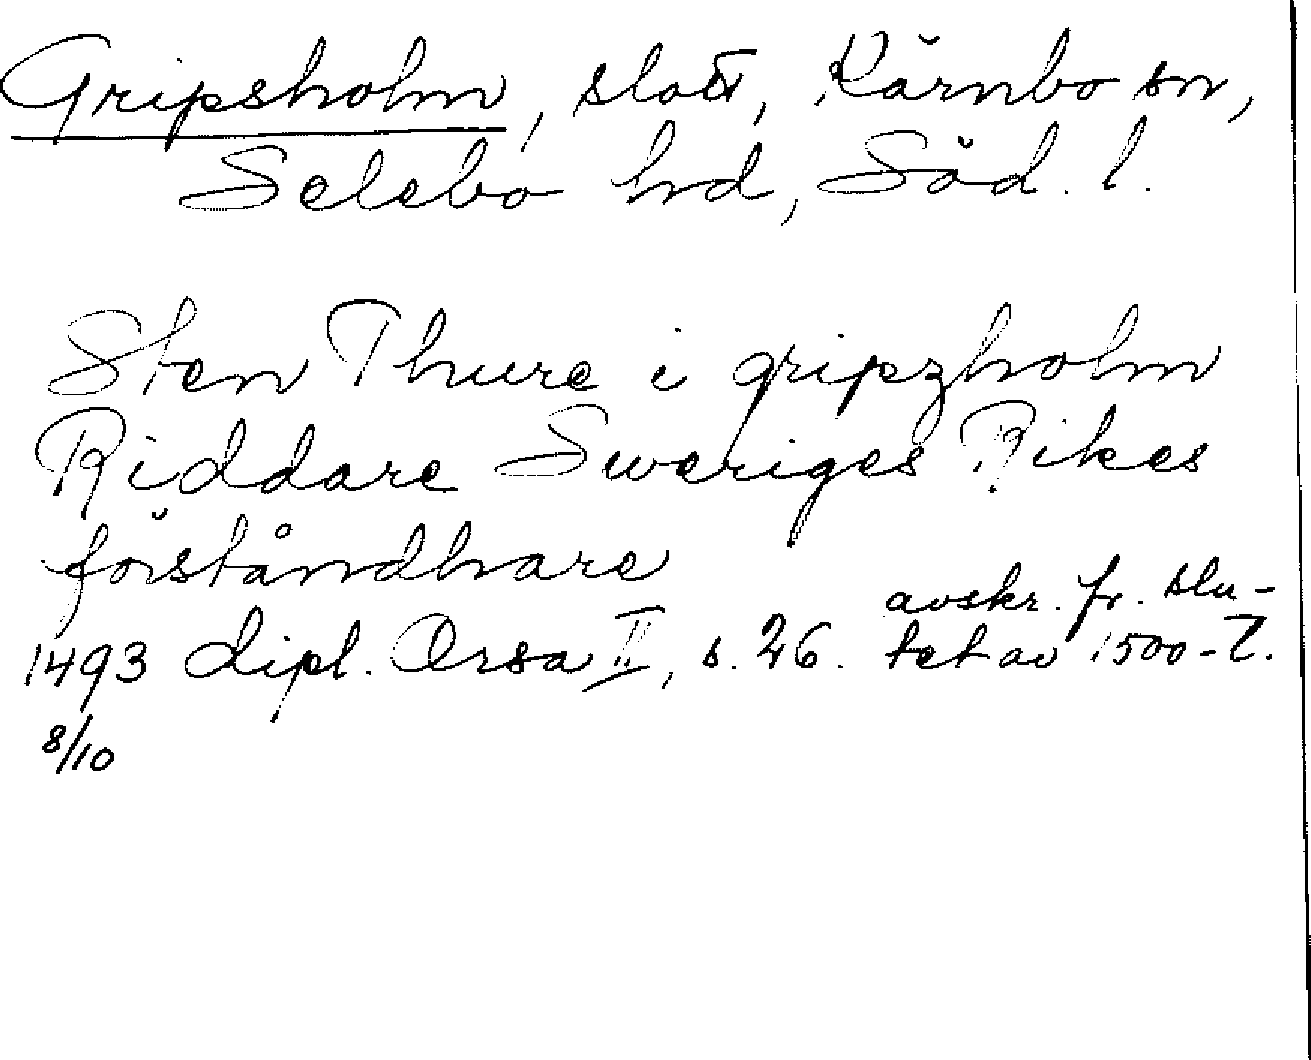 Gripsholm, slott, Kärnbo sn,
Selebo hd, Söd. l.
Sten Thure i gripzholm
Riddare Sweriges Rikes
förståndhare
1493 dipl. Orsa II, s. 26. avskr. fr. slu-
tet av 1500-t.
8/10